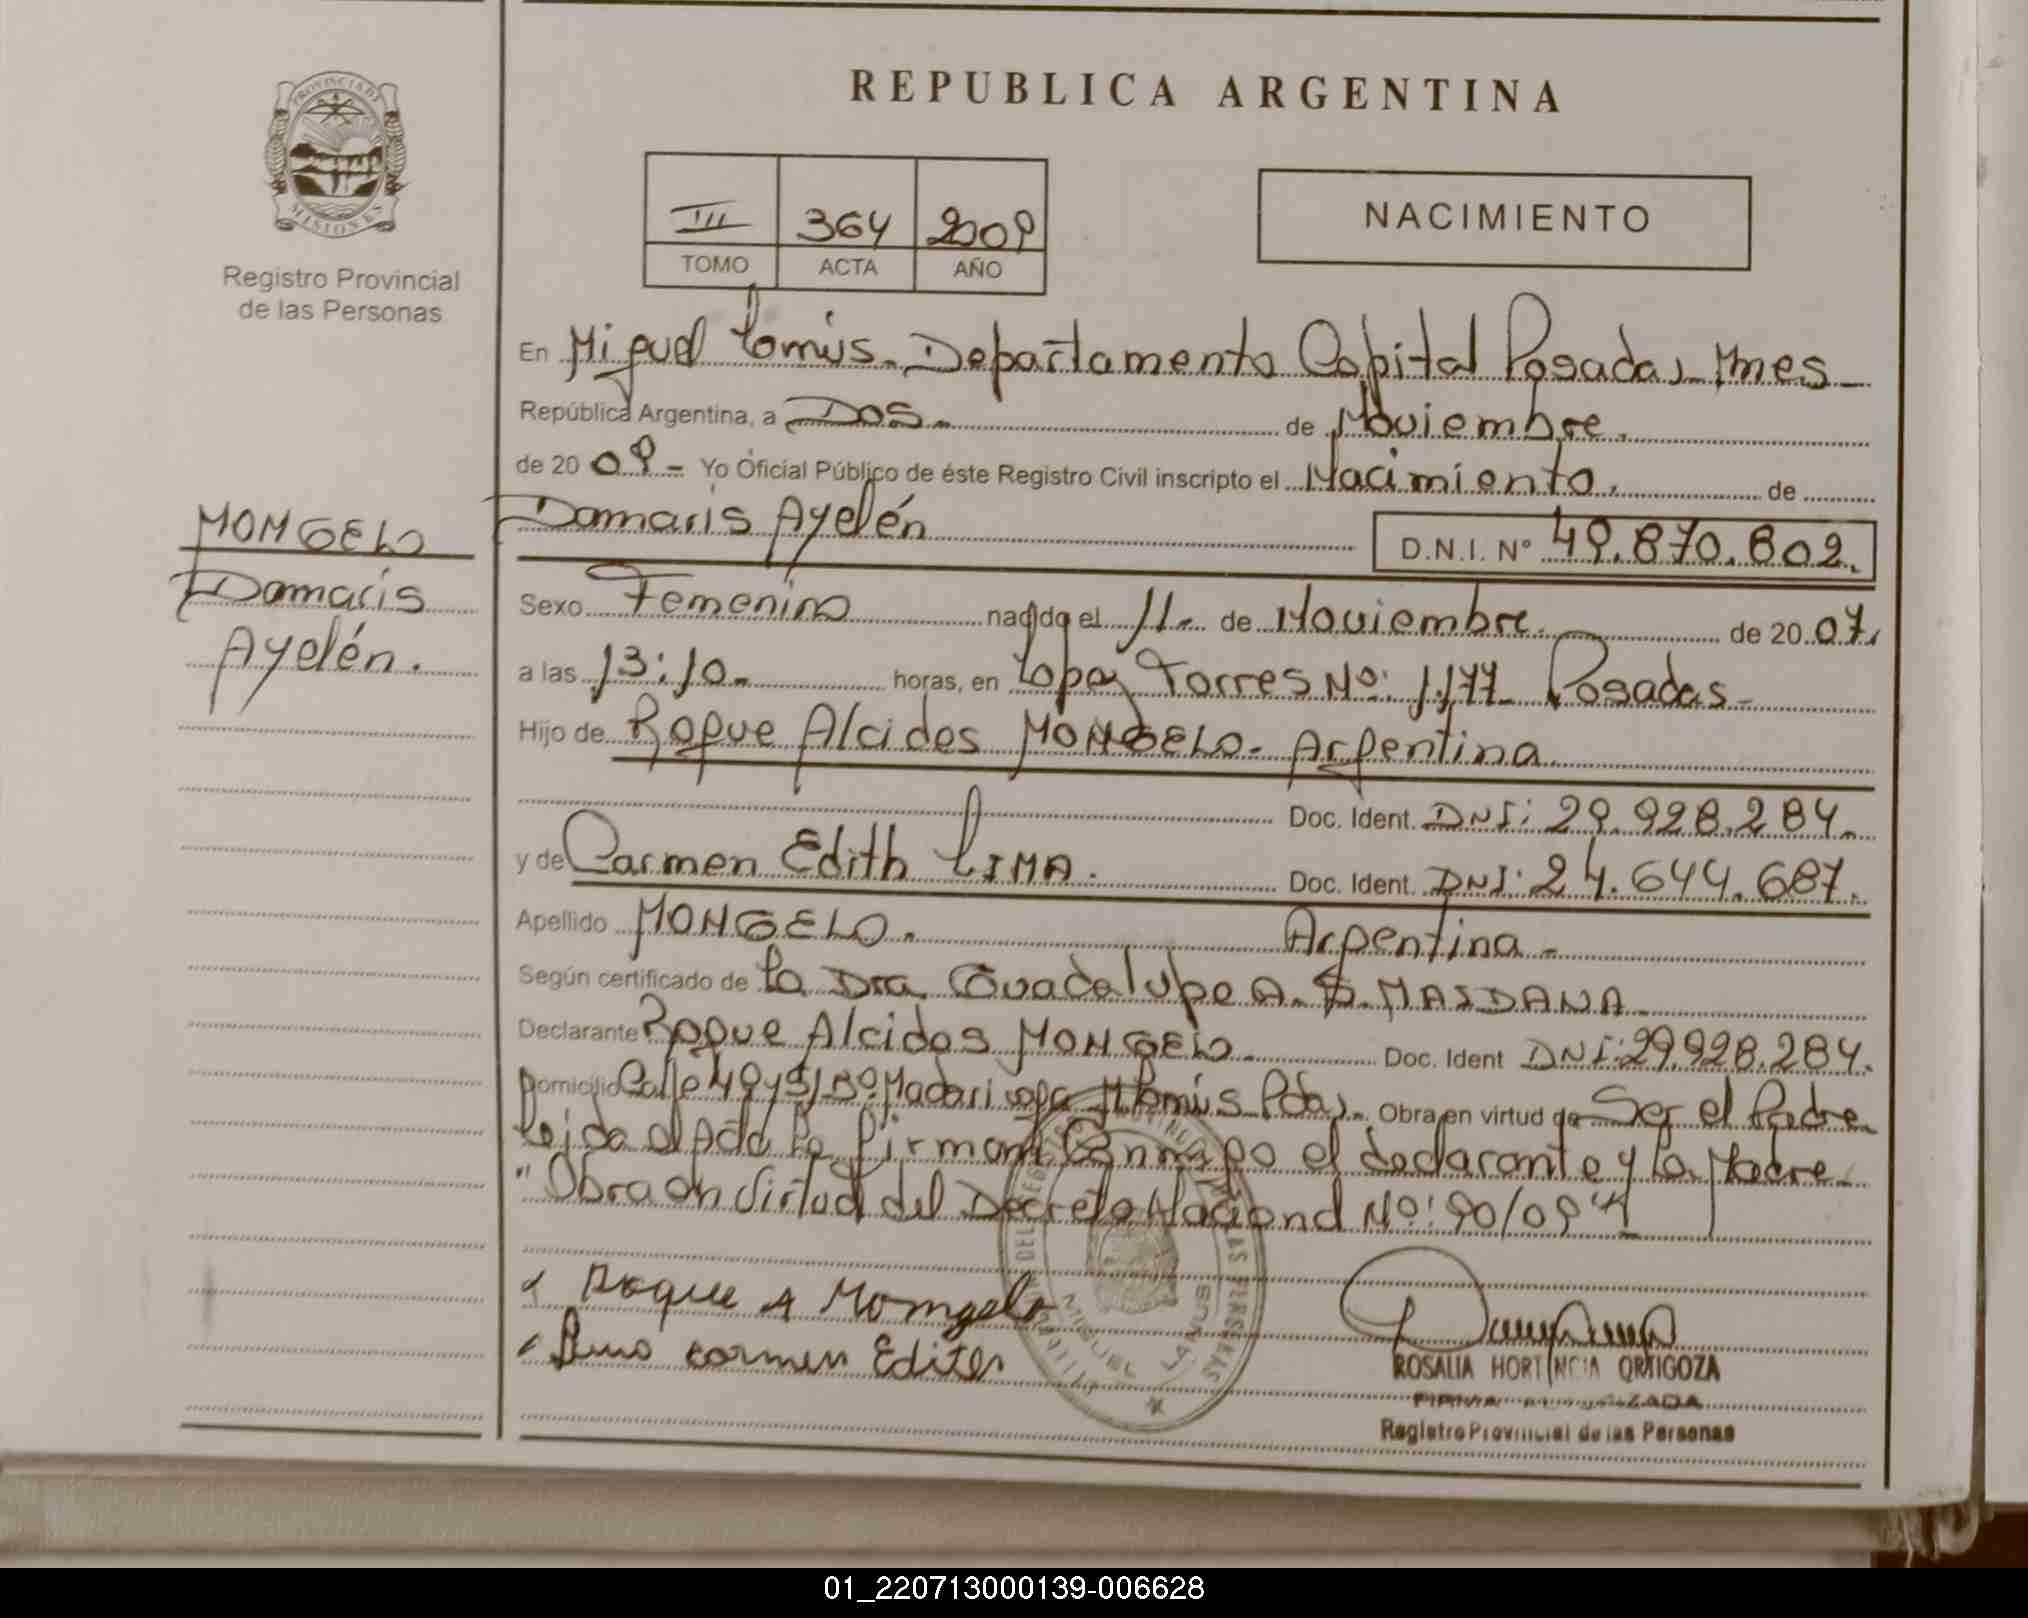 REPUBLICA ARGENTINA
PROVINCIA DE MISIONES
Registro Provincial
de las Personas
III 364 2009
TOMO ACTA AÑO
NACIMIENTO
En Miguel Lanús - Departamento Capital Posadas - Mnes -
República Argentina, a Dos - de Noviembre.
de 20 09 - Yo Oficial Público de éste Registro Civil inscripto el Nacimiento. de
Damaris Ayelén D.N.I. Nº 49.870.802.
MONGELO
Damaris
Ayelén.
Sexo Femenino nacido el 11 - de Noviembre. de 20 07.
a las 13:10 - horas, en Lopez Torres Nº: 1.177 - Posadas -
Hijo de Roque Alcides MONGELO - Argentina
Doc. Ident. DNI: 29.928.284.
y de Carmen Edith LIMA. Doc. Ident. DNI: 24.644.687.
Apellido MONGELO. Argentina -
Según certificado de La Dra. Guadalupe A. MAIDANA
Declarante Roque Alcides MONGELO - Doc. Ident DNI: 29.928.284.
Domicilio Calle Bº Madariaga M. Lanús Pdas. Obra en virtud de Ser el Padre
Leida el Acta La firman Conmigo el declarante y la Madre
"Obra en Virtud del Decreto Nacional Nº: 90/09"
Roque A Mongelo
Carmen Edith
MIGUEL LANUS
ROSALIA HORTENCIA ORTIGOZA
FIRMA AUTORIZADA
Registro Provincial de las Personas
01_220713000139-006628